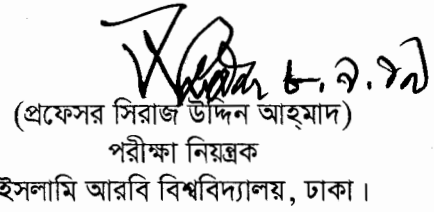 (প্রফেসর সিরাজ উদ্দিন আহমাদ)
পরীক্ষা নিয়ন্ত্রক
ইসলামি আরবি বিশ্ববিদ্যালয়, ঢাকা।